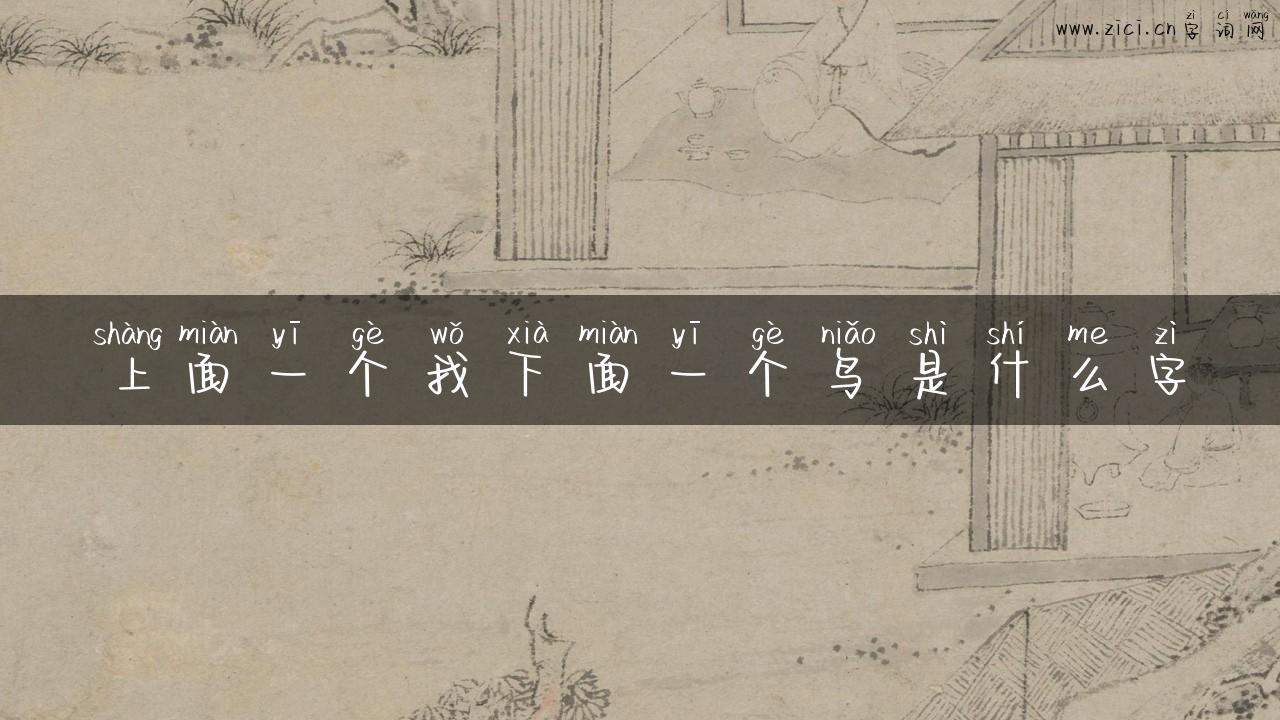 www.zici.cn 字词网
zì cí wǎng
shàng miàn yī gè wǒ xià miàn yī gè niǎo shì shí me zì
上面一个我下面一个鸟是什么字